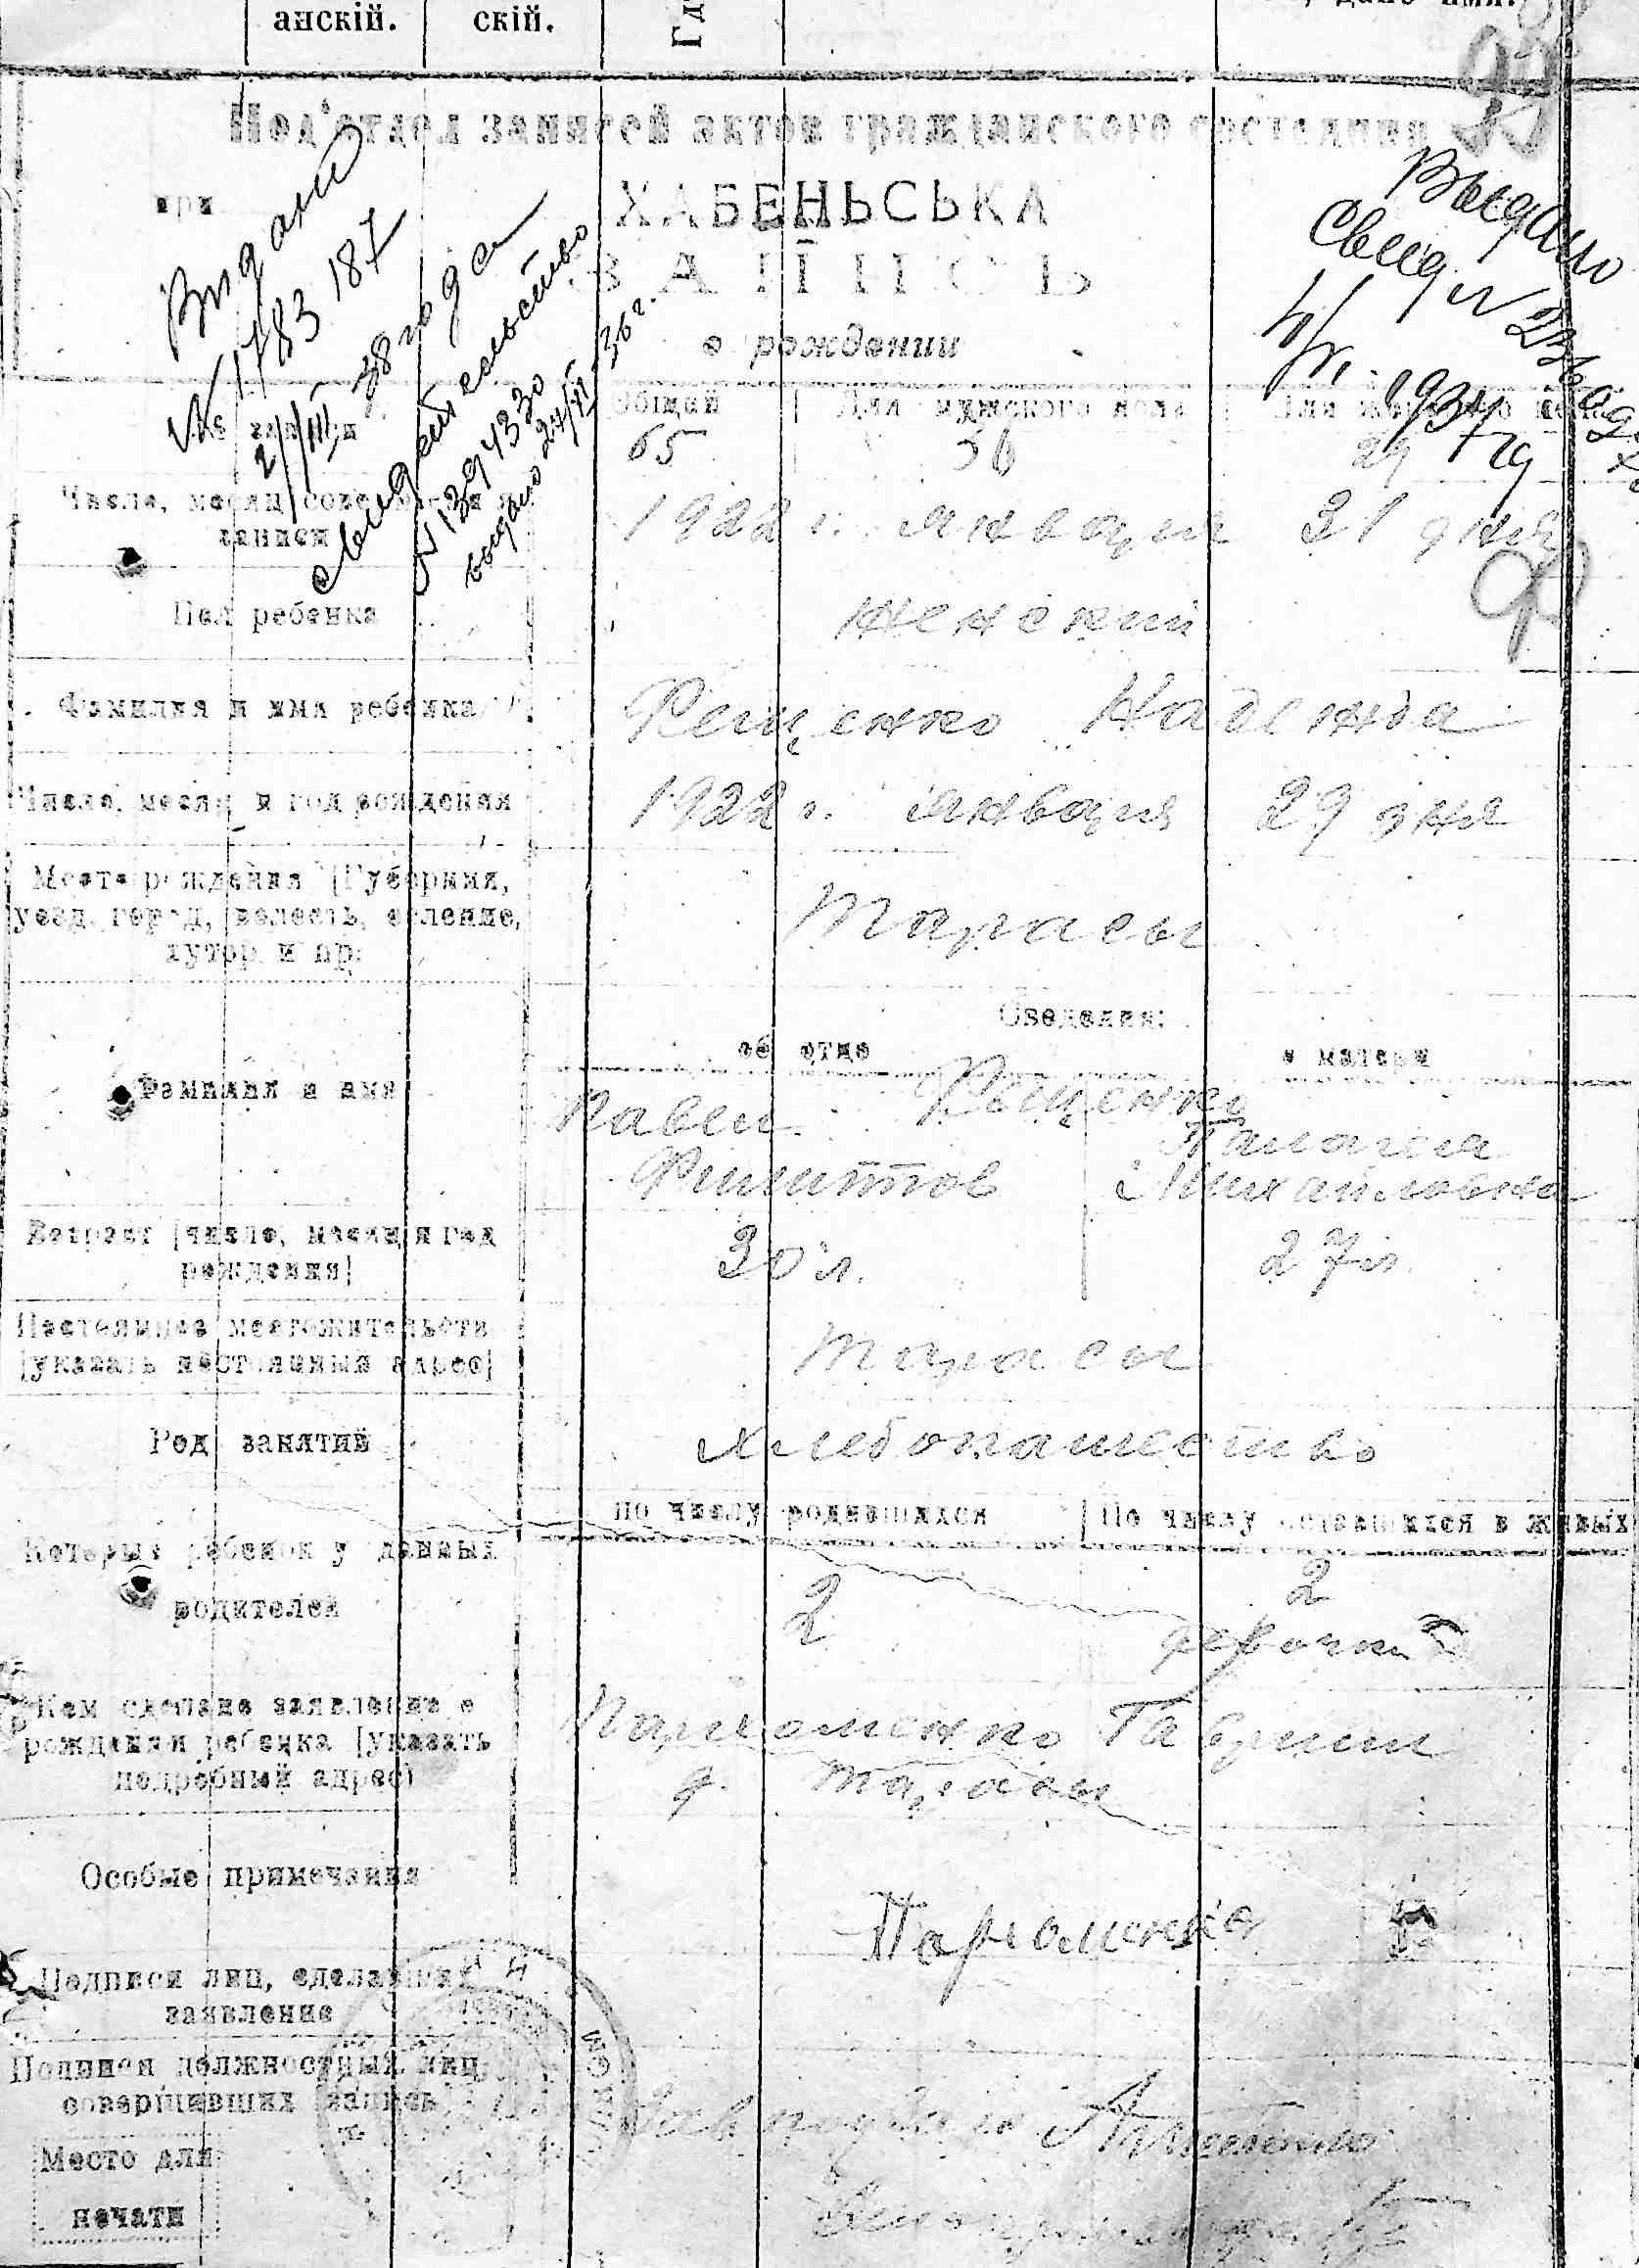 анскій.
скій.
Под'отдел записей актов гражданского состояния
при
ХАБЕНЬСЬКА
ЗАПИСЬ
о рождении
Видано
№ 1783187
38 года
свидетельство
N 1394330
выдано 24/VI 36 г.
Выдано
свид
1934
№ записи
Общий
Для мужского пола
Для женского пола
65
36
29
Число, месяц совершения
записи
1922 г. января 31 дня
Пол ребенка
женский
Фамилия и имя ребенка
Рещенко Надежда
Число, месяц и год рождения
1922 г. января 29 дня
Место рождения [Губерния,
уезд, город, волость, селение,
хутор и пр.
Тарасы
Сведения:
об отце
о матери
Фамилия и имя
Рещенко
Павел
Филиппов
Палагея
Михайловна
Возраст [число, месяц и год
рождения]
30 л.
27 л.
Постоянное местожительств
[указать постоянный адрес]
Тарасы
Род занятий
хлебопашество
по числу родившихся
По числу оставшихся в живых
Который ребенок у данных
родителей
2
2
девочки
Кем сделано заявление о
рождении ребенка [указать
подробный адрес]
Пархоменко Гавриил
д. Тарасы
Особые примечания
Пархоменко
Подписи лиц, сделавших
заявление
Подписи должностных лиц
совершивших запись
Место для
печати